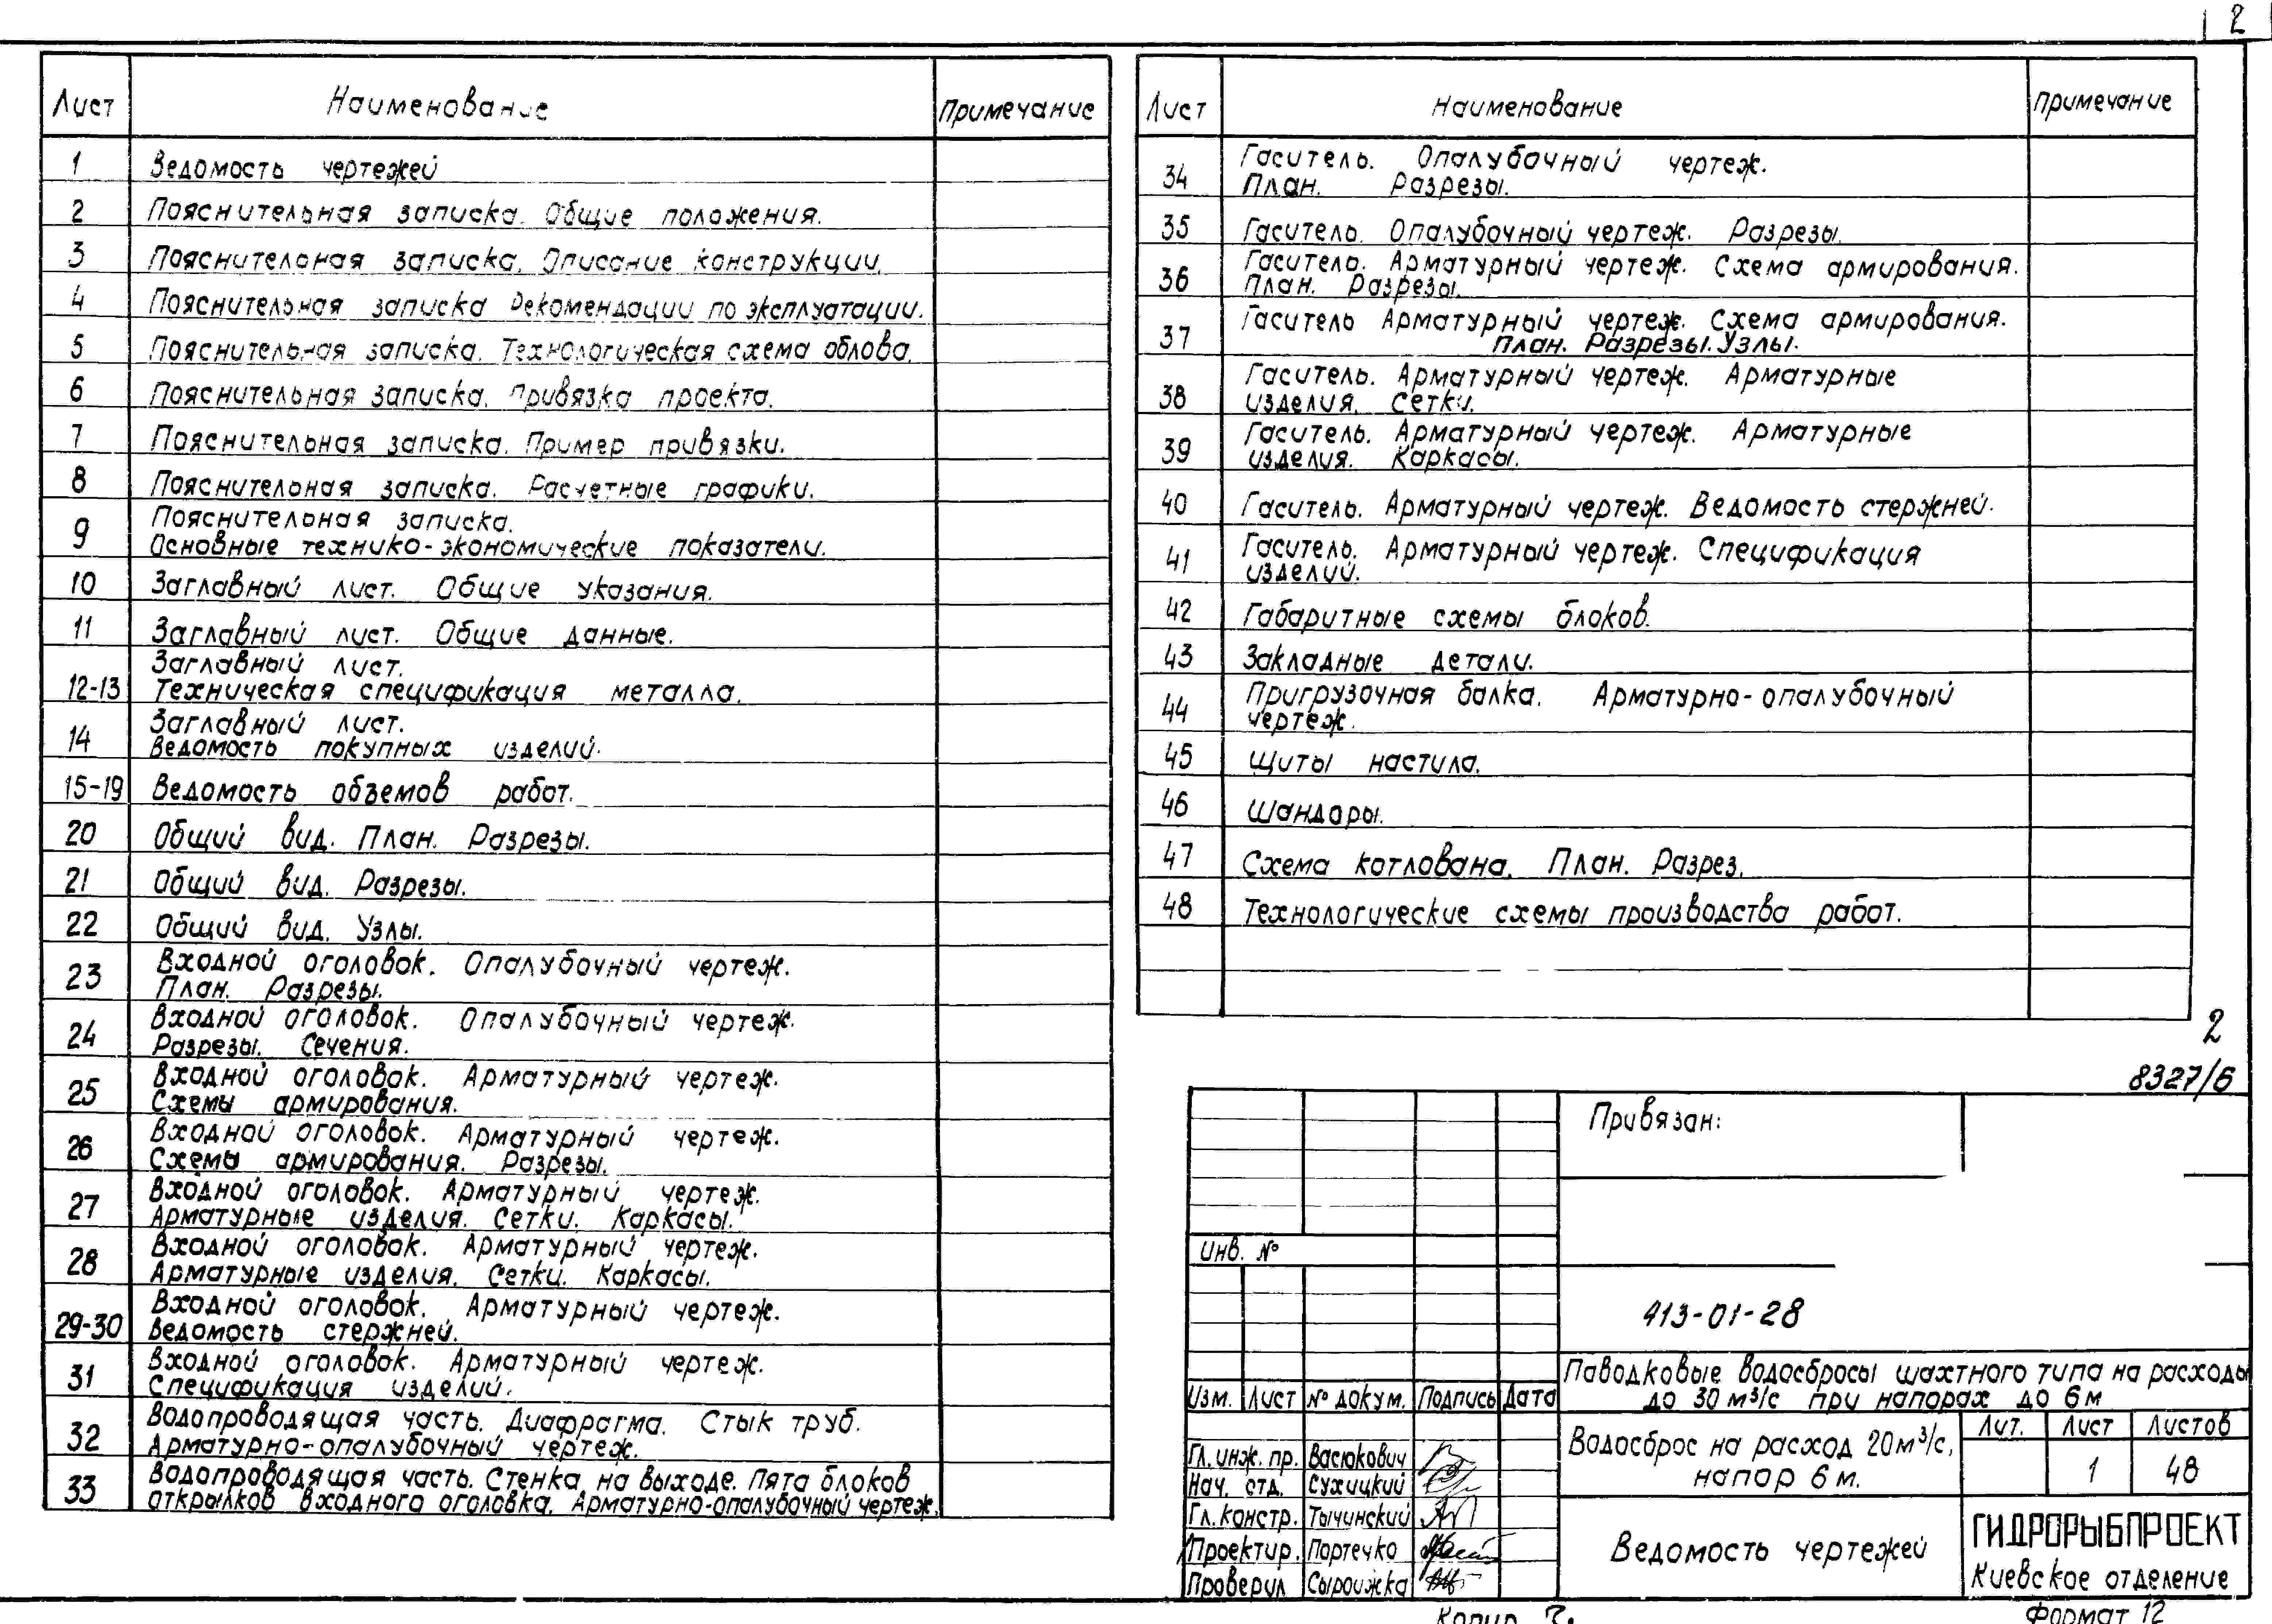 2
Лист Наименование Примечание
1 Ведомость чертежей
2 Пояснительная записка. Общие положения.
3 Пояснительная записка. Описание конструкции.
4 Пояснительная записка Рекомендации по эксплуатации.
5 Пояснительная записка. Технологическая схема облова.
6 Пояснительная записка. Привязка проекта.
7 Пояснительная записка. Пример привязки.
8 Пояснительная записка. Расчетные графики.
9 Пояснительная записка.
Основные технико-экономические показатели.
10 Заглавный лист. Общие указания.
11 Заглавный лист. Общие данные.
12-13 Заглавный лист.
Техническая спецификация металла.
14 Заглавный лист.
Ведомость покупных изделий.
15-19 Ведомость обземов работ.
20 Общий вид. План. Разрезы.
21 Общий вид. Разрезы.
22 Общий вид. Узлы.
23 Входной оголовок. Опалубочный чертеж.
План. Разрезы.
24 Входной оголовок. Опалубочный чертеж.
Разрезы. Сечения.
25 Входной оголовок. Арматурный чертеж.
Схемы армирования.
26 Входной оголовок. Арматурный чертеж.
Схемы армирования. Разрезы.
27 Входной оголовок. Арматурный чертеж.
Арматурные изделия. Сетки. Каркасы.
28 Входной оголовок. Арматурный чертеж.
Арматурные изделия. Сетки. Каркасы.
29-30 Входной оголовок. Арматурный чертеж.
Ведомость стержней.
31 Входной оголовок. Арматурный чертеж.
Спецификация изделий.
32 Водопроводящая часть. Диафрагма. Стык труб.
Арматурно-опалубочный чертеж.
33 Водопроводящая часть. Стенка на выходе. Пята блоков
открылков входного оголовка. Арматурно-опалубочный чертеж.
Лист Наименование Примечание
34 Гаситель. Опалубочный чертеж.
План. Разрезы.
35 Гаситель. Опалубочный чертеж. Разрезы.
36 Гаситель. Арматурный чертеж. Схема армирования.
План. Разрезы.
37 Гаситель Арматурный чертеж. Схема армирования.
План. Разрезы. Узлы.
38 Гаситель. Арматурный чертеж. Арматурные
изделия. Сетки.
39 Гаситель. Арматурный чертеж. Арматурные
изделия. Каркасы.
40 Гаситель. Арматурный чертеж. Ведомость стержней.
41 Гаситель. Арматурный чертеж. Спецификация
изделий.
42 Габаритные схемы блоков.
43 Закладные детали.
44 Пригрузочная балка. Арматурно-опалубочный
чертеж.
45 Щиты настила.
46 Шандоры.
47 Схема котлована. План. Разрез.
48 Технологические схемы производства работ.
2
8327/6
Привязан:
Инв. №
413-01-28
Паводковые водосбросы шахтного типа на расходы
до 30 м³/с при напорах до 6 м
Изм. Лист № докум. Подпись Дата
Водосброс на расход 20 м³/с,
напор 6 м.
Лит. Лист Листов
1 48
Гл. инж. пр. Васюкович
Нач. отд. Сухицкий
Гл. констр. Тычинский
Проектир. Портечко
Проверил Сыроижка
Ведомость чертежей
ГИДРОРЫБПРОЕКТ
Киевское отделение
Копир.
Формат 12